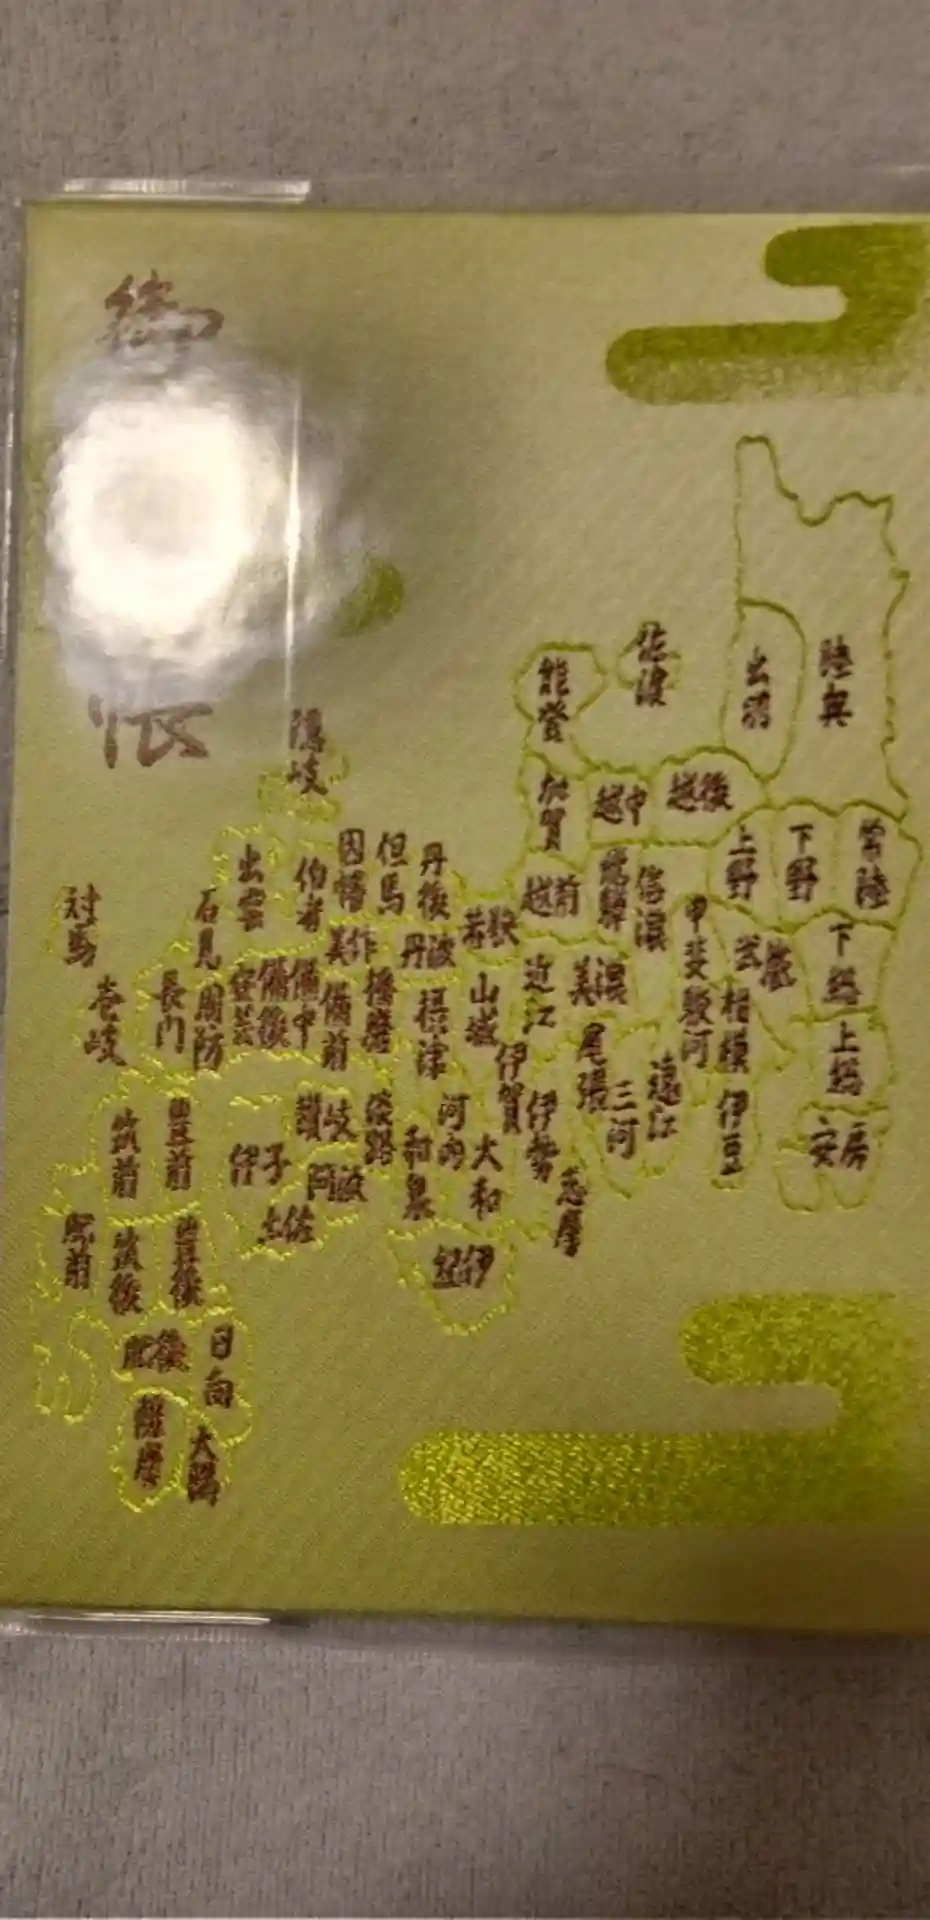 御
帳
隠岐
能登
佐渡
出羽
陸奥
加賀
越中
越後
上野
下野
常陸
越前
飛騨
信濃
甲斐
武蔵
下総
上総
安房
対馬
壱岐
石見
出雲
伯耆
因幡
但馬
丹後
若狭
美作
丹波
長門
周防
安芸
備後
備中
備前
播磨
摂津
山城
近江
美濃
駿河
相模
伊豆
伊賀
尾張
三河
遠江
筑前
豊前
伊予
讃岐
淡路
阿波
土佐
和泉
河内
大和
伊勢
志摩
紀伊
肥前
筑後
豊後
肥後
日向
薩摩
大隅